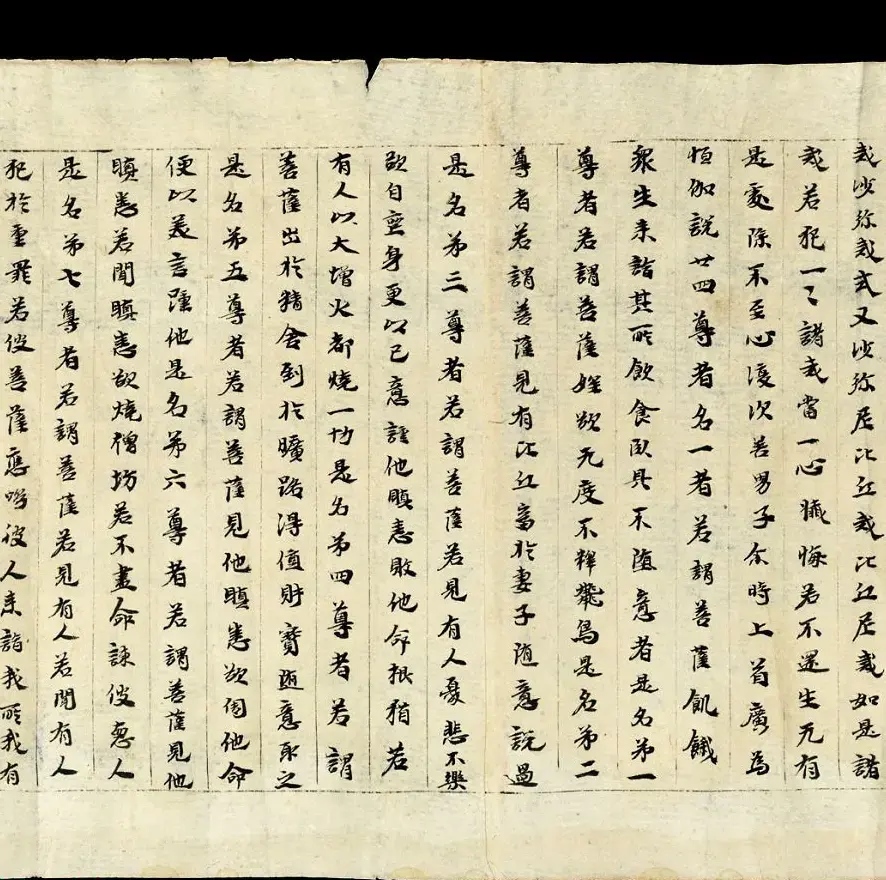 戒沙弥戒式叉沙弥尼比丘戒比丘尼戒如是諸
戒若犯一々諸戒當一心懺悔若不還生无有
是處除不至心復次善男子尒時上首廣為
恒伽說廿四尊者名一者若謂菩薩飢餓
衆生来詣其所飲食臥具不随意者是名第一
尊者若謂菩薩婬欲无度不擇鳥是名第二
尊者若謂菩薩見有比丘畜於妻子随意說過
是名第三尊者若謂菩薩若見有人憂悲不樂
欲自喪身更以己意誣他瞋恚敗他命根猶若
有人以大增火都燒一切是名第四尊者若謂
菩薩出於精舍到於曠路得值財寶随意取之
是名第五尊者若謂菩薩見他瞋恚欲他命
便以美言他是名第六尊者若謂菩薩見他
瞋恚若聞瞋恚欲燒僧坊若不盡命諫彼惡人
是名第七尊者若謂菩薩若見有人若聞有人
犯於重罪若彼菩薩應彼人来詣我所我有